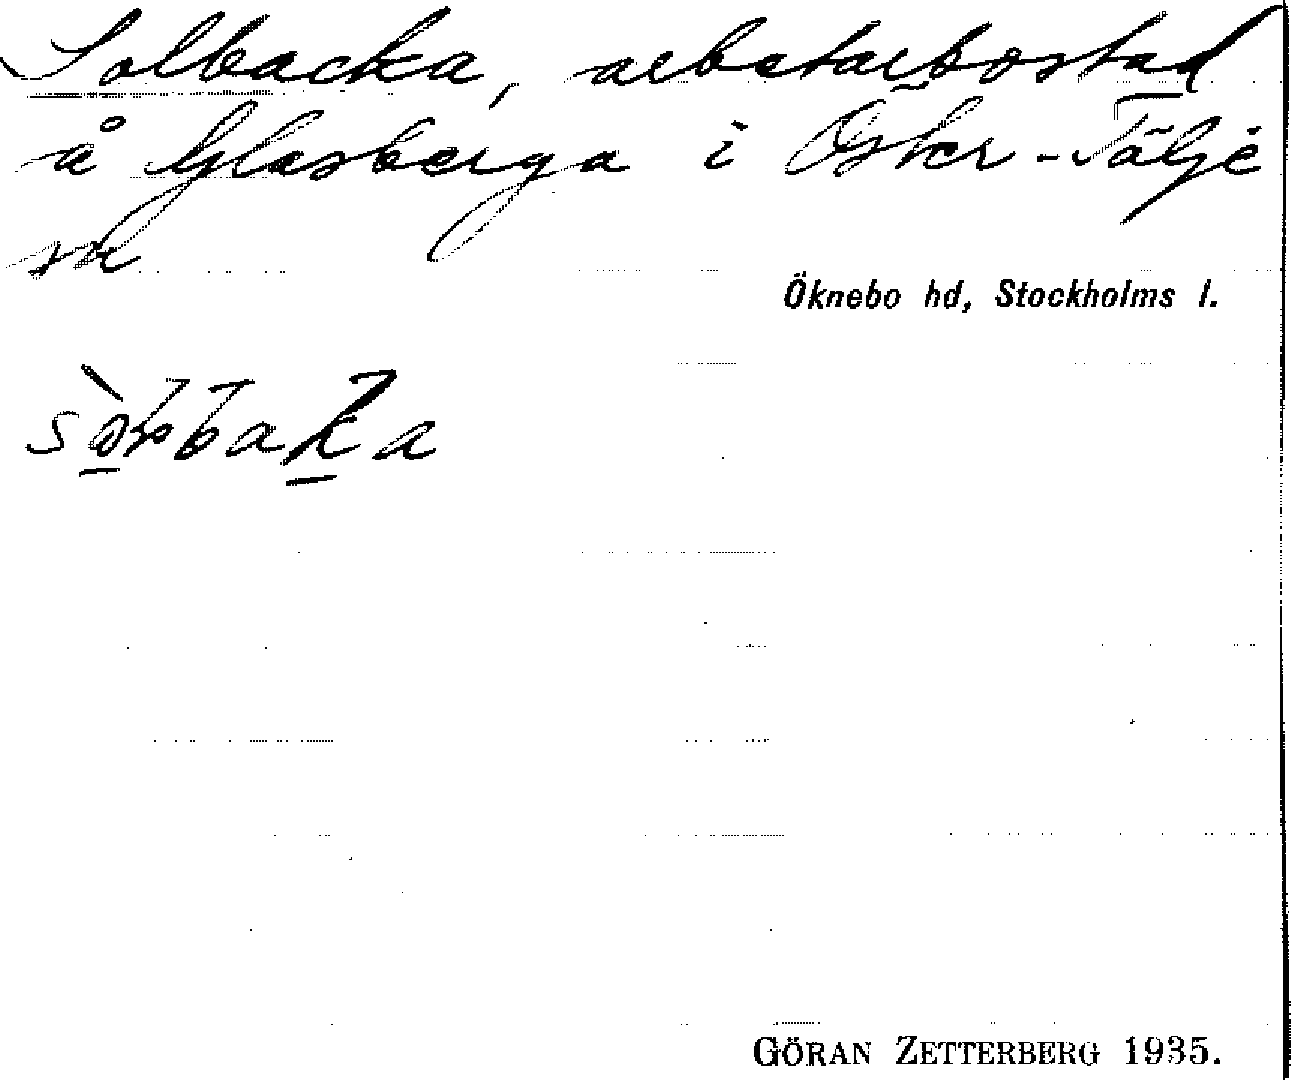 Solbacka, arbetarbostad
å Glasberga i Öster-Tälje
sn
Öknebo hd, Stockholms l.
GÖRAN ZETTERBERG 1935.